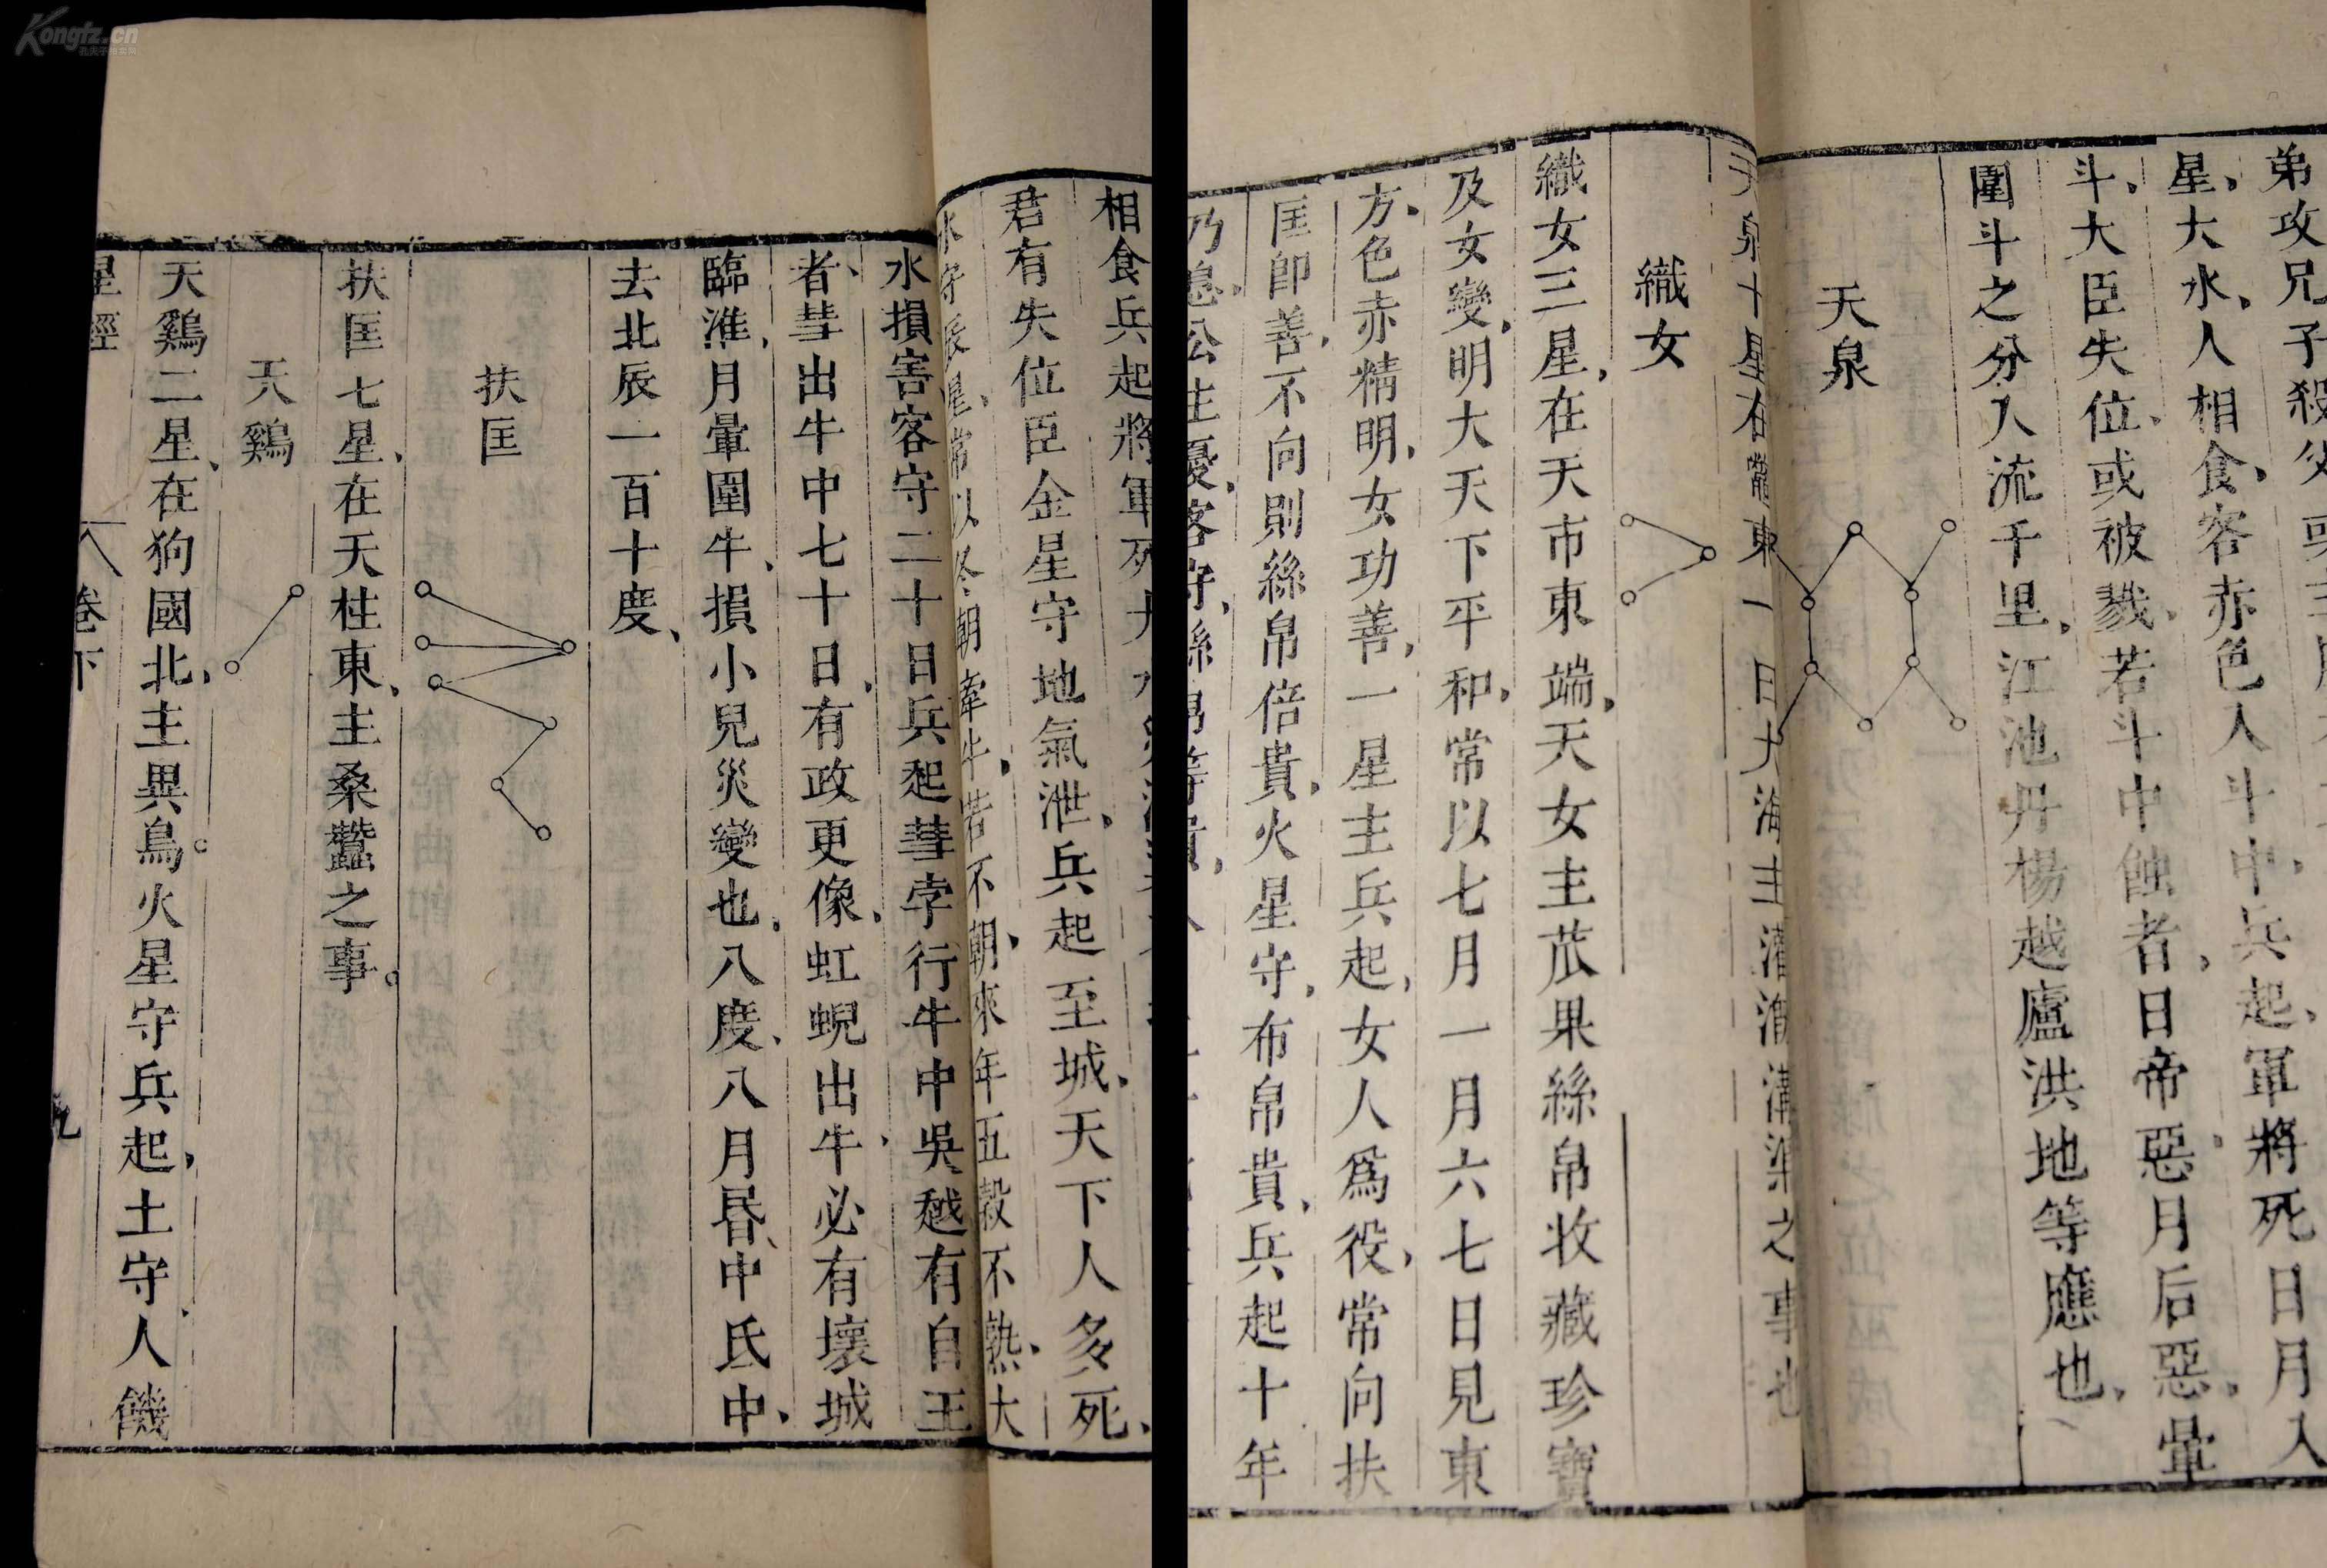 Kongfz.cn
弟攻兄子殺父
星大水人相食客赤色入斗中兵起軍將死日月入
斗大臣失位或被戮若斗中蝕者日帝惡月后惡暈
圍斗之分人流千里江池丹楊越廬洪地等應也
天泉
天泉十星在鼈東一曰大海主灌溉溝渠之事也
織女
織女三星在天市東端天女主苽果絲帛收藏珍寶
及女變明大天下平和常以七月一月六七日見東
方色赤精明女功善一星主兵起女人爲役常向扶
匡即善不向則絲帛倍貴火星守布帛貴兵起十年
乃息公主憂客守絲帛等貴
相食兵起將軍死大水
君有失位臣金星守地氣泄兵起至城天下人多死
水守辰星常以冬朝牽牛若不朝來年五穀不熟大
水損害客守二十日兵起彗孛行牛中吳越有自王
者彗出牛中七十日有政更像虹蜺出牛必有壞城
臨淮月暈圍牛損小兒災變也八度八月昏中氐中
去北辰一百十度
扶匡
扶匡七星在天柱東主桑蠶之事
天鷄
天鷄二星在狗國北主異鳥火星守兵起土守人饑
星經 卷下 九